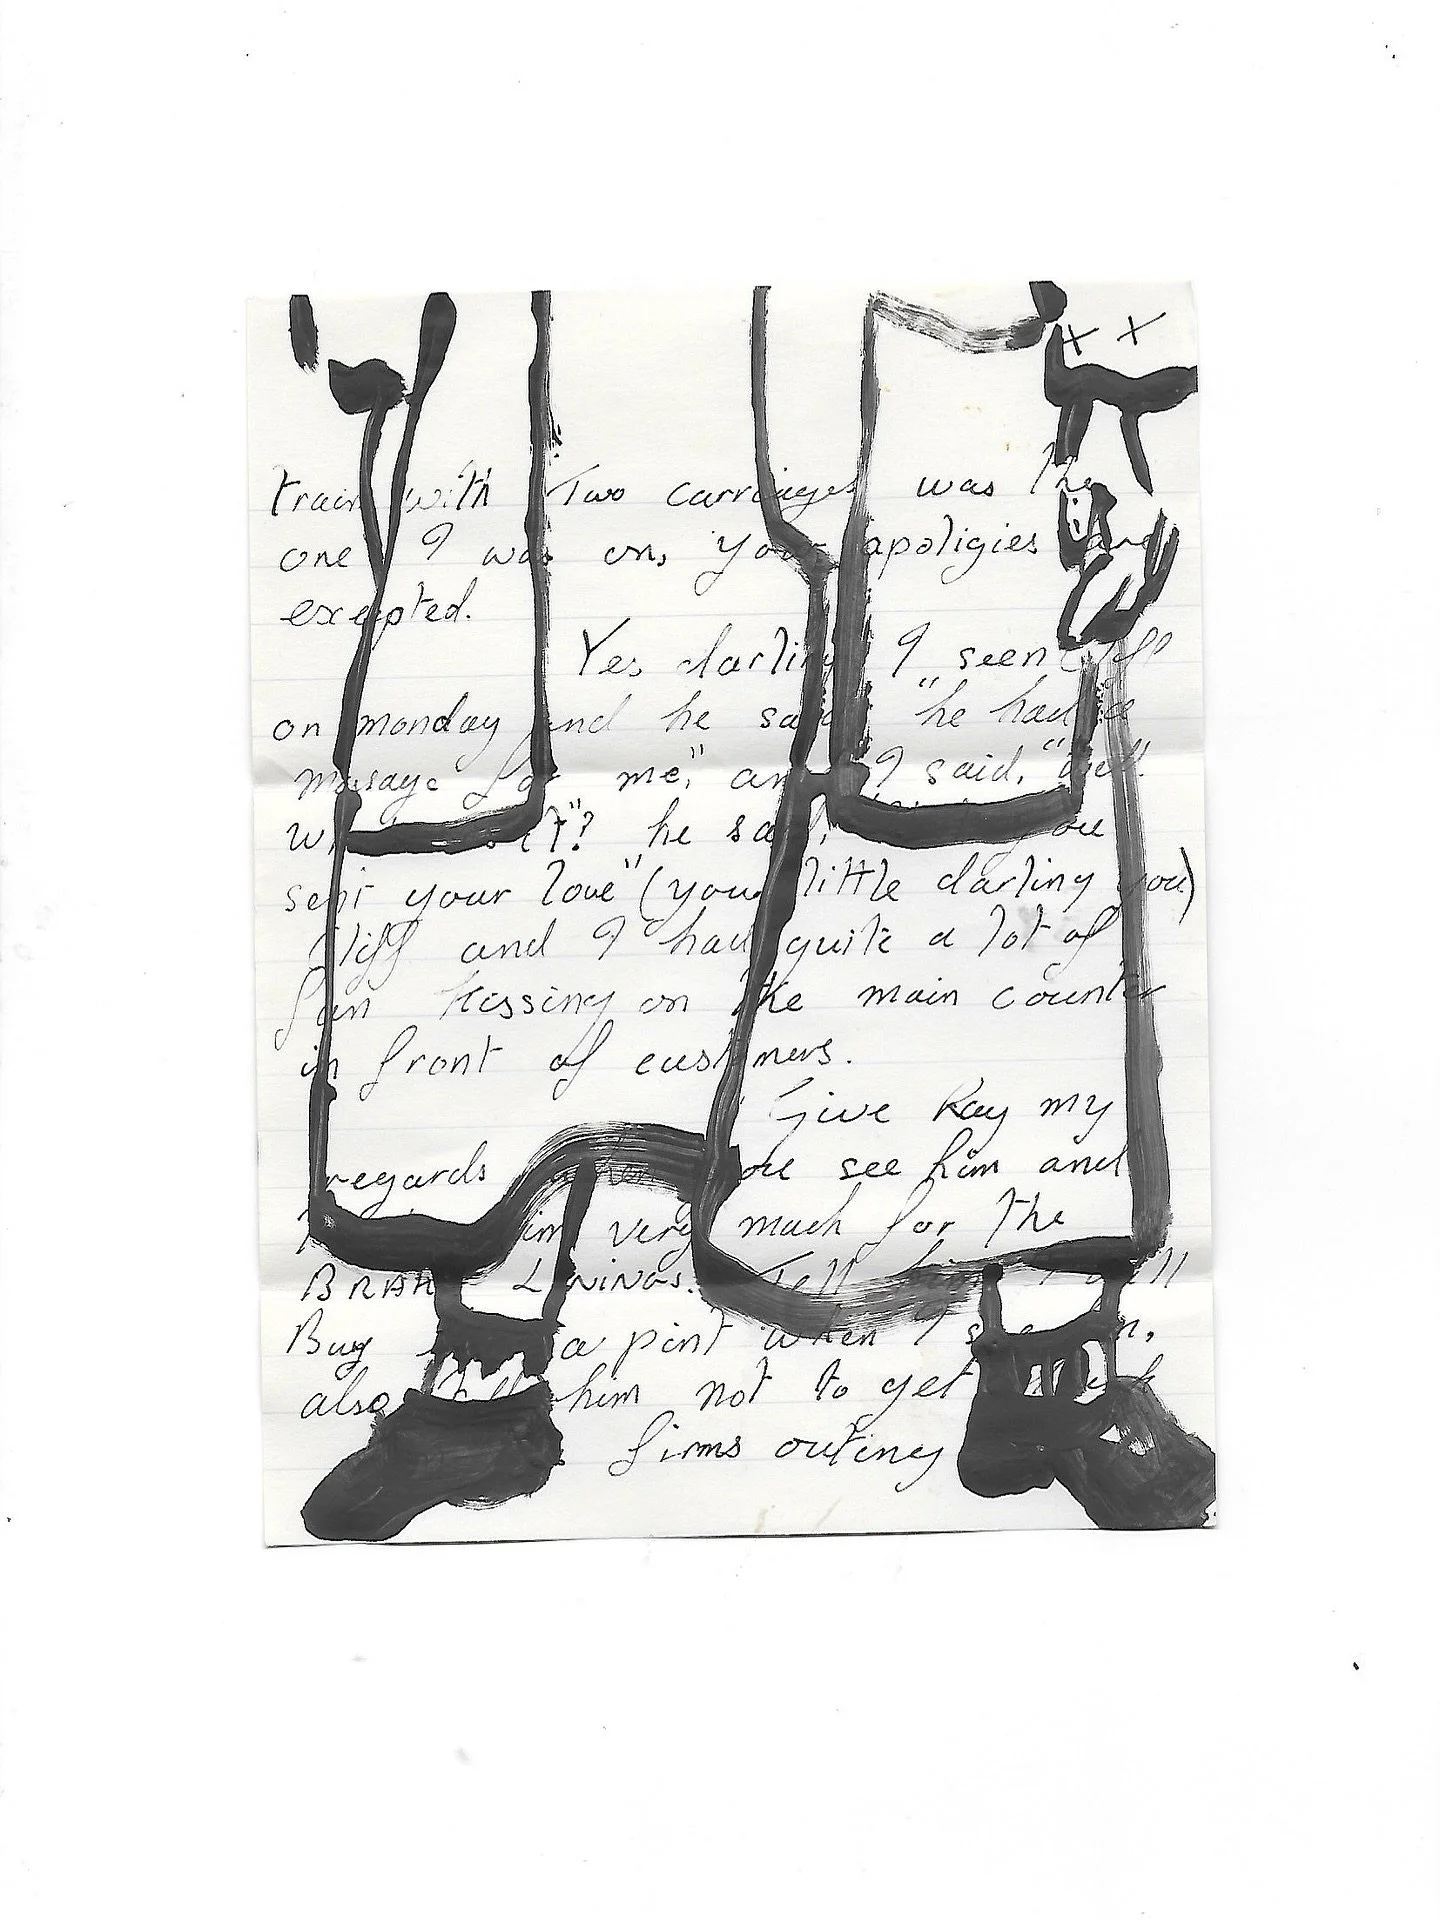 x x
train with Two carriages was the
one I was on, your apoligies are
excepted.
Yes darling I seen Cliff
on monday and he said "he had a
masage for me", and I said, "well
w t"? he said, you
sent your love" (you little darling you)
Cliff and I had quite a lot of
fun kissing on the main counter
in front of customers.
Give Ray my
regards when you see him and
him very much for the
BRAKE LININGS. Tell him I will
Buy a pint when I see him,
also tell him not to get
firms outing